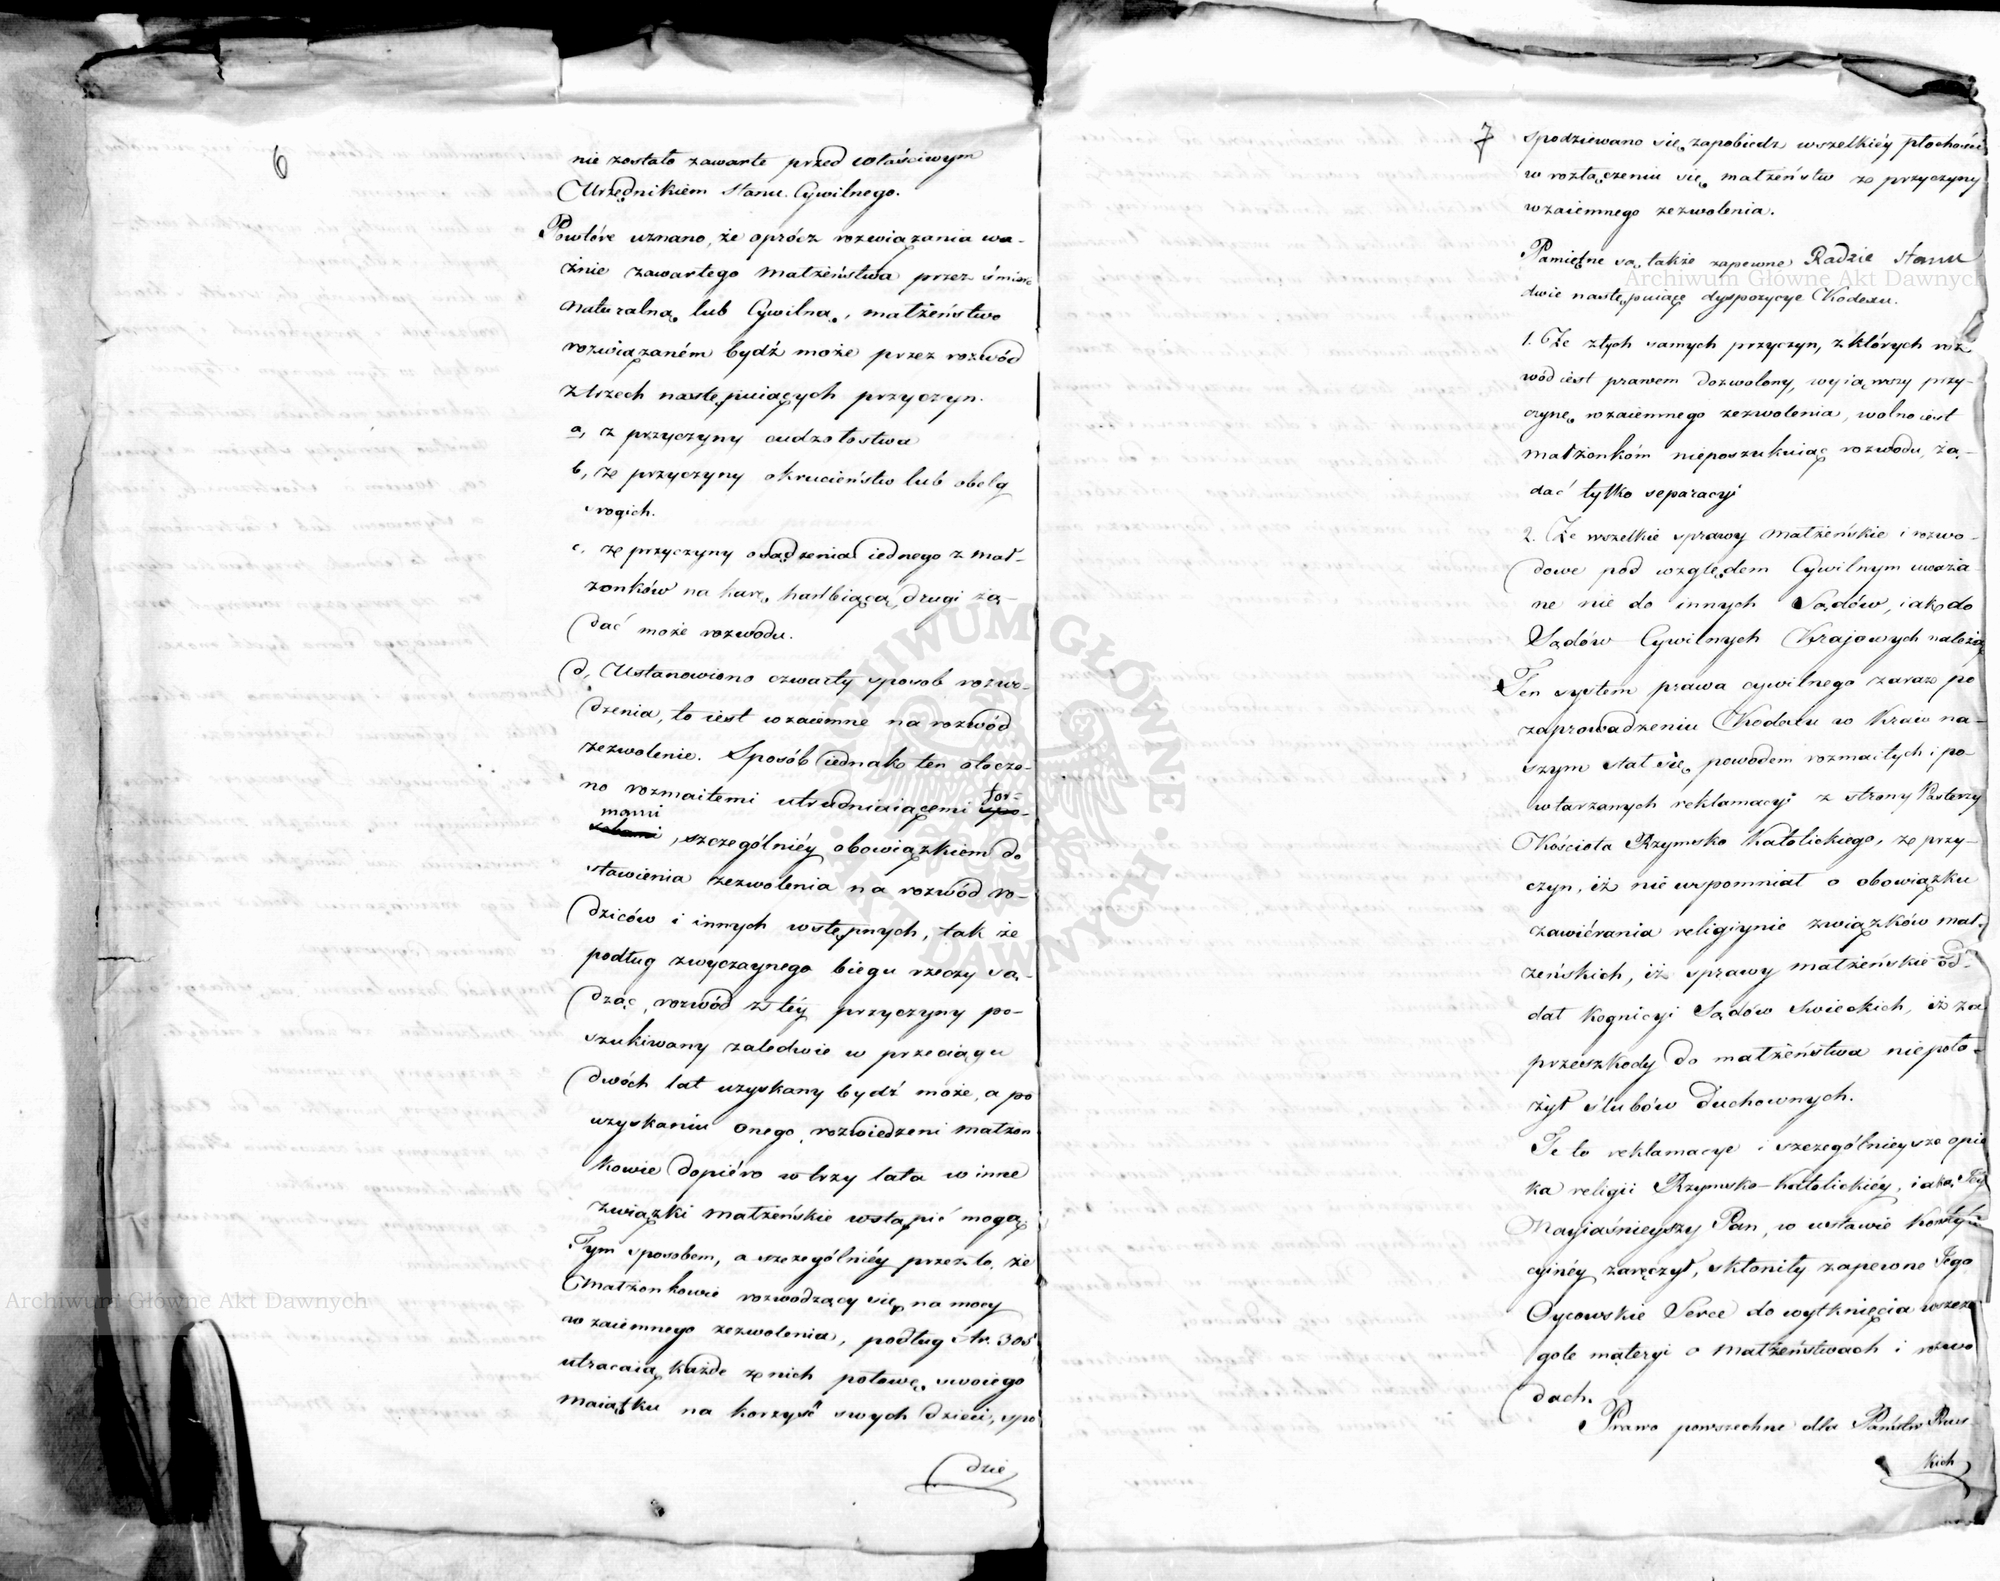 6
nie zostało zawarte przed właściwym
Urzędnikiem Stanu Cywilnego.
Powtóre uznano, że oprócz rozwiązania wa-
żnie zawartego małżeństwa przez śmierć
naturalną lub Cywilną, małżeństwo
rozwiązaném bydź może przez rozwód
z trzech następuiących przyczyn.
a, z przyczyny cudzołostwa
b, ze przyczyny okrucieństw lub obelg
srogich.
c, ze przyczyny osądzenia iednego z mał-
żonków na karę hańbiącą, drugi żą-
dać może rozwodu.
d, Ustanowiono czwarty sposob rozwo-
dzenia, to iest wzaiemne na rozwód
zezwolenie. Sposób iednak ten otoczo-
no rozmaitemi utrudniaiącemi for-
mami
, szczególniéy obowiązkiem do
stawienia zezwolenia na rozwód ro-
dziców i innych wstępnych, tak że
podług zwyczaynego biegu rzeczy są-
dząc, rozwód z téy przyczyny po-
szukiwany zaledwie w przeciągu
dwóch lat uzyskany bydź może, a po
uzyskaniu onego, rozwiedzeni małżon
kowie dopiéro w trzy lata w inne
związki małżeńskie wstąpić mogą
Tym sposobem, a szczególniéy przez to, że
Małżonkowie rozwodzący się na mocy
wzaiemnego zezwolenia, podług Ar. 305
utracaią każde z nich połowę swoiego
maiątku na korzyść swych dzieci, spo
dzie
7
spodziewano się zapobiedz wszelkiéy płochości
w rozłączeniu się małżeństw ze przyczyny
wzaiemnego zezwolenia.
Pamiętne są także zapewne Radzie Stanu
Archiwum Główne Akt Dawnych
dwie następuiące dyspozycye Kodexu.
1. Że z tych samych przyczyn, z których roz
wód iest prawem dozwolony, wyiąwszy przy-
czynę wzaiemnego zezwolenia, wolno iest
małżonkóm nieposzukuiąc rozwodu, żą-
dać tylko separacyi
2. Że wszelkie sprawy małżeńskie i rozwo-
dowe pod względem Cywilnym uważa-
ne nie do innych Sądów, iak do
Sądów Cywilnych Krajowych należą
Ten system prawa cywilnego zaraz po
zaprowadzeniu Kodexu w Kraiu na-
szym stał się powodem rozmaitych i po
wtarzanych reklamacyi z strony Pasterzy
Kościoła Rzymsko Katolickiego, ze przy-
czyn, iż nie wspomniał o obowiązku
zawiérania religiynie związków mał-
żeńskich, iż sprawy małżeńskie od-
dał Kognicyi Sądów Swieckich, iż za
przeszkody do małżeństwa niepoło-
żył ślubów duchownych.
Te to reklamacye i szczególnieysza opie
ka religii Rzymsko-Katolickiéy, iaką Téy
Nayiaśnieyszy Pan, w ustawie Konstytu
cyinéy zaręczył, skłoniły zapewne Jego
Oycowskie Serce do wytknięcia w szcze
gole materyi o małżeństwach i rozwo
dach.
Prawo powszechne dla Państw Prus-
kich
ARCHIWUM GŁÓWNE
AKT DAWNYCH
Archiwum Główne Akt Dawnych